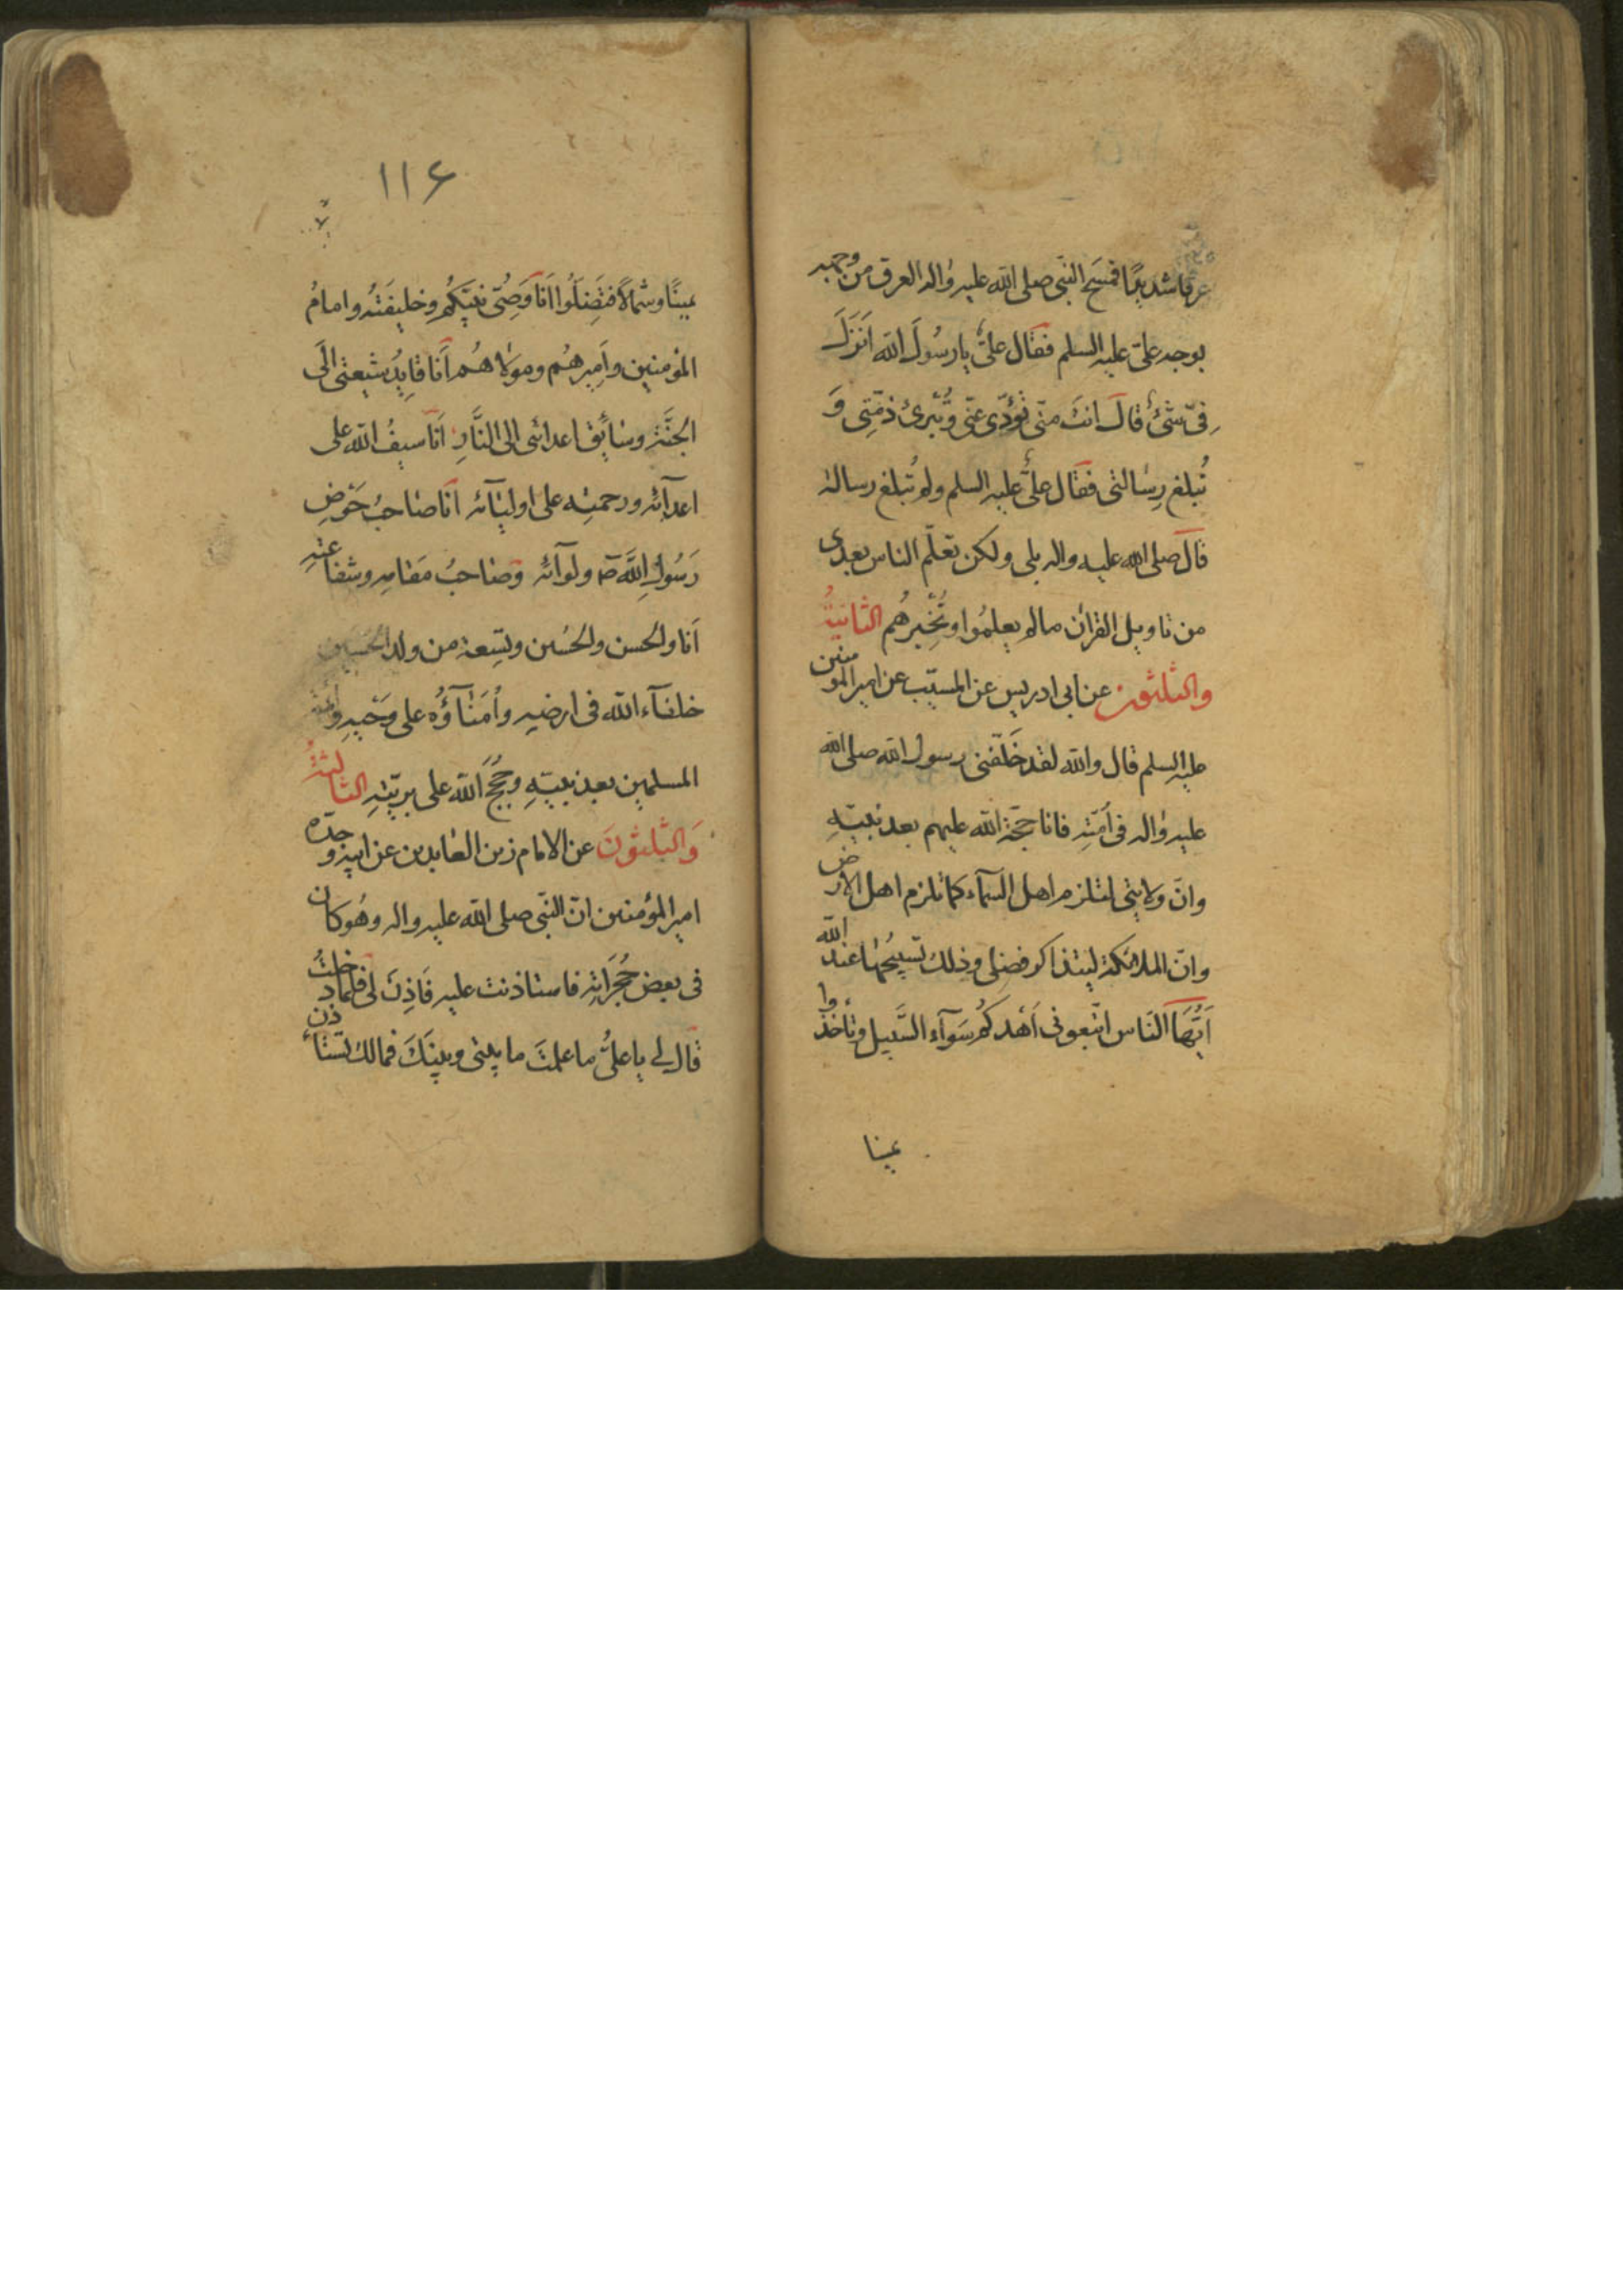 عرقا شديدًا فمسَح النبّى صلى الله عليه واله العرق من وجهه
بوجه علىّ عليه السلم فقال علىٌّ يا رسُولَ الله اَنَزَلَ
فِىّ شئٌ قالَ انتَ منّى تؤدّى عنّى وتُبْرئ ذمّتِى وَ
تُبلغ رِسالتى فقال علىٌّ عليه السلم ولم تُبلغ رسالة
قالَ صلى الله عليه واله بلى ولكن تعلّم الناس بعدى
من تاويل القران مالم يعلمُوا وتُخْبِرهُم الثانيةُ
والثلثون عن ابى ادريس عن المسيّب عن امير المومنين
عليه السلم قال والله لقد خَلّفنى رسول الله صلى الله
عليه واله فى اُمّتِه فانا حجّة الله عليهم بعد نبيّهِ
وانّ ولايتى لتلزم اهل السمآء كما تلزم اهل الارض
وانّ الملائكة ليتذاكر فضلى وذلك تسبيحُها عند الله
اَيُّهَا النّاس اتّبعونى اَهْدكُم سَوآء السَّبيل ولا تأخذوا
يمينا
١١۶
يمينًا وشمالاً فتَضِلّوا اَنا وَصِىّ نبيّكُم وخليفَتُه وامامُ
المؤمنين وأَميرهُم ومولاهُم اَنا قايِدُ شيعتى الَى
الجنَّة وسَايِق اعدائى الى النَّارِ اَنَا سيفُ الله على
اعدآئِه ورحمتِه على اوليآئه انَا صَاحبُ حَوْضِ
رَسُولِ اللَّهِ ص ولوآئه وصَاحبُ مَقامِه وشفاعتِهِ
اَنا والحَسن والحُسين وتِسعة من ولد الحُسين
خلفآء الله فى ارضِه واُمَنآؤُه على وَحْيِهِ وائمّة
المسلمين بعد نبيّهِ وحُجَجُ اللّه على بريّتِهِ الثالثةُ
وَالثلثونَ عن الامام زين العابدين عن ابيه وجدّه
امير المؤمنين انّ النبّى صلى الله عليه واله وهُو كان
فى بعض حُجَرَاتِه فاستاذنت عليه فَاذِنَ لى فلمّا دخلتُ
قالَ لى يا علىُّ ما علمتَ ما بينى وبينَكَ فمالك تستأذن